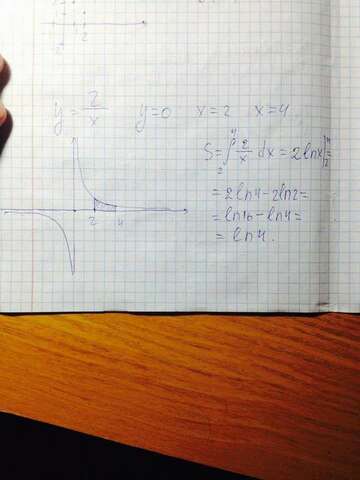 2
y = 2/x y=0 x=2 x=4
S=∫₂⁴ 2/x dx = 2lnx|₂⁴ =
= 2ln4 - 2ln2 =
= ln16 - ln4 =
= ln4.
2 4